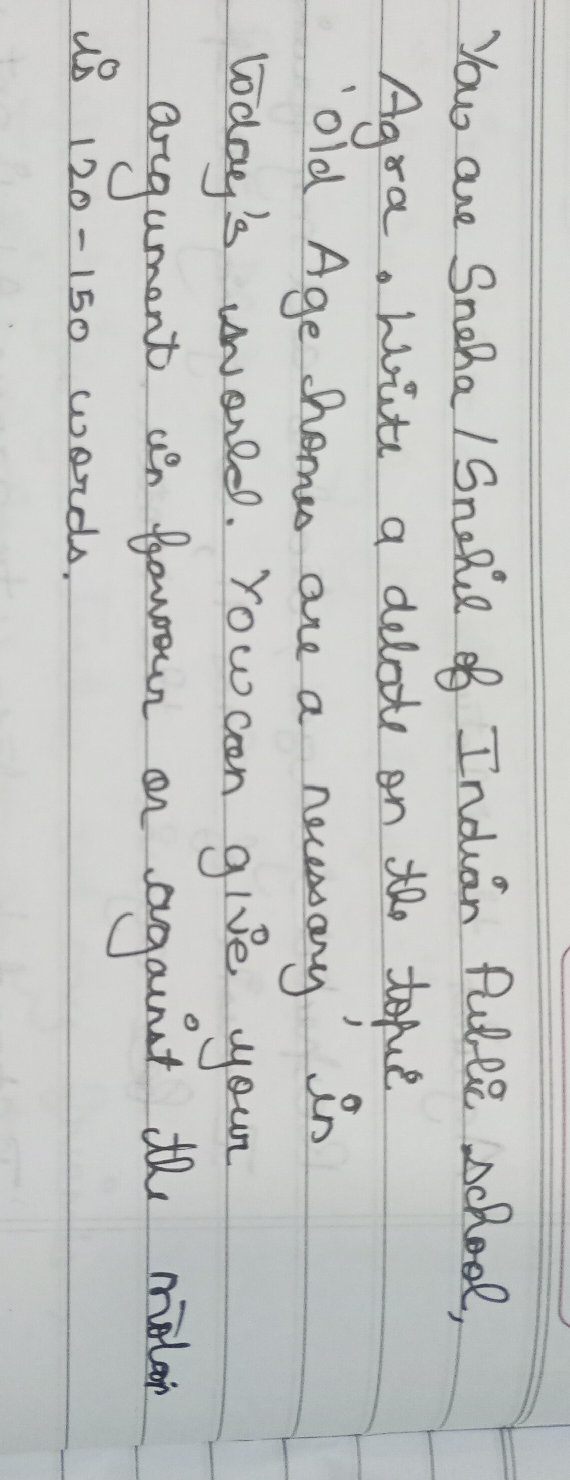 You are Sneha / Snehil of Indian Public school,
Agra. Write a debate on the topic
'old Age homes are a necessary' in
today's world. You can give your
argument in favour or against the motion
is 120-150 words.